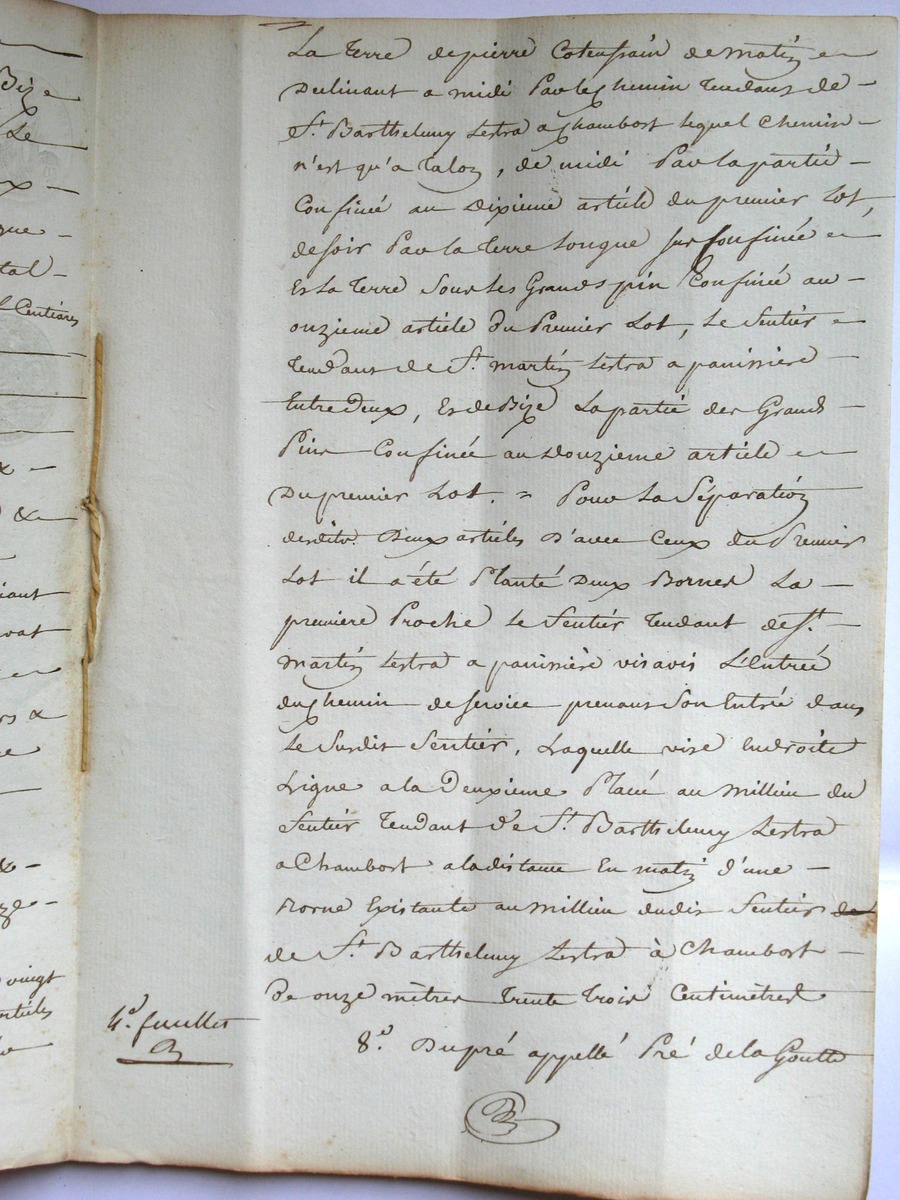 Bize
Le
x —
que —
tal —
Centiares
x —
& —
iant
vat
rs &
e
& —
ze —
vingt
rticles
La terre de pierre Cotensain de matin
Declinant a midi Par le chemin tendant de —
St. Barthelemy Lestra a chambost lequel chemin —
n'est qu'a talon, de midi Par la partie —
Confinée au dixieme article du premier Lot,
de soir Par la terre Longue sus confinée
Et La terre Sous Les Grands pin Confinée au —
onzieme article du Premier Lot, Le Sentier
tendant de St. martin Lestra a panissiere —
Entre deux, Et de Bize La partie des Grands —
Pins Confinée au Douzieme article
Du premier Lot. = Pour La Séparation
desdits Deux articles D'avec Ceux du Premier
Lot il a été Planté Deux Bornes La —
premiere Proche Le Sentier tendant de St. —
martin Lestra a panissière vis avis L'Entrée
du chemin de service prenant Son Entré dans
Le Susdit Sentier, Laquelle vise En droite
Ligne a la Deuxieme Placé au Millieu du
Sentier tendant de St. Barthelemy Lestra
a Chambost a la distance En matin d'une —
Borne Existante au Millieu dudit Sentier de
de St. Barthelemy Lestra à Chambost —
De onze mètres trente trois Centimètres
4e. feuillet
8e. Du pré appellé Pré de la Goutte